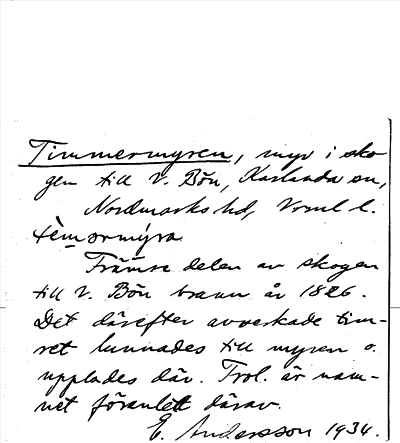 Timmermyren, myr i sko
gen till V. Bön, Karlanda sn,
Nordmarks hd, Vrml l.
tèmərmýra
Främre delen av skogen
till V. Bön brann år 1826.
Det därefter avverkade tim-
ret lunnades till myren o.
upplades där. Trol. är nam-
net föranlett därav.
E. Andersson 1934.